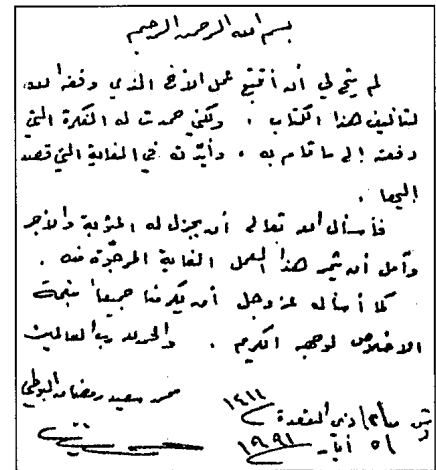 بسم الله الرحمن الرحيم
لم يتح لي أن أتتبع عمل الأخ الذي وفقه الله
لتأليف هذا الكتاب . ولكني حمدت له الفكرة التي
دفعته إلى ما قام به . وأيدته في الغاية التي قصد
إليها .
فأسأل الله تعالى أن يجزل له المثوبة والأجر
وآمل أن يثمر هذا العمل الغاية المرجوّة منه .
كما أسأله عز وجل أن يكرمنا جميعاً بنعمة
الاخلاص لوجهه الكريم . والحمد لله رب العالمين
محمد سعيد رمضان البوطي
ذي القعدة ١٤١١
١٥ أيار ١٩٩١